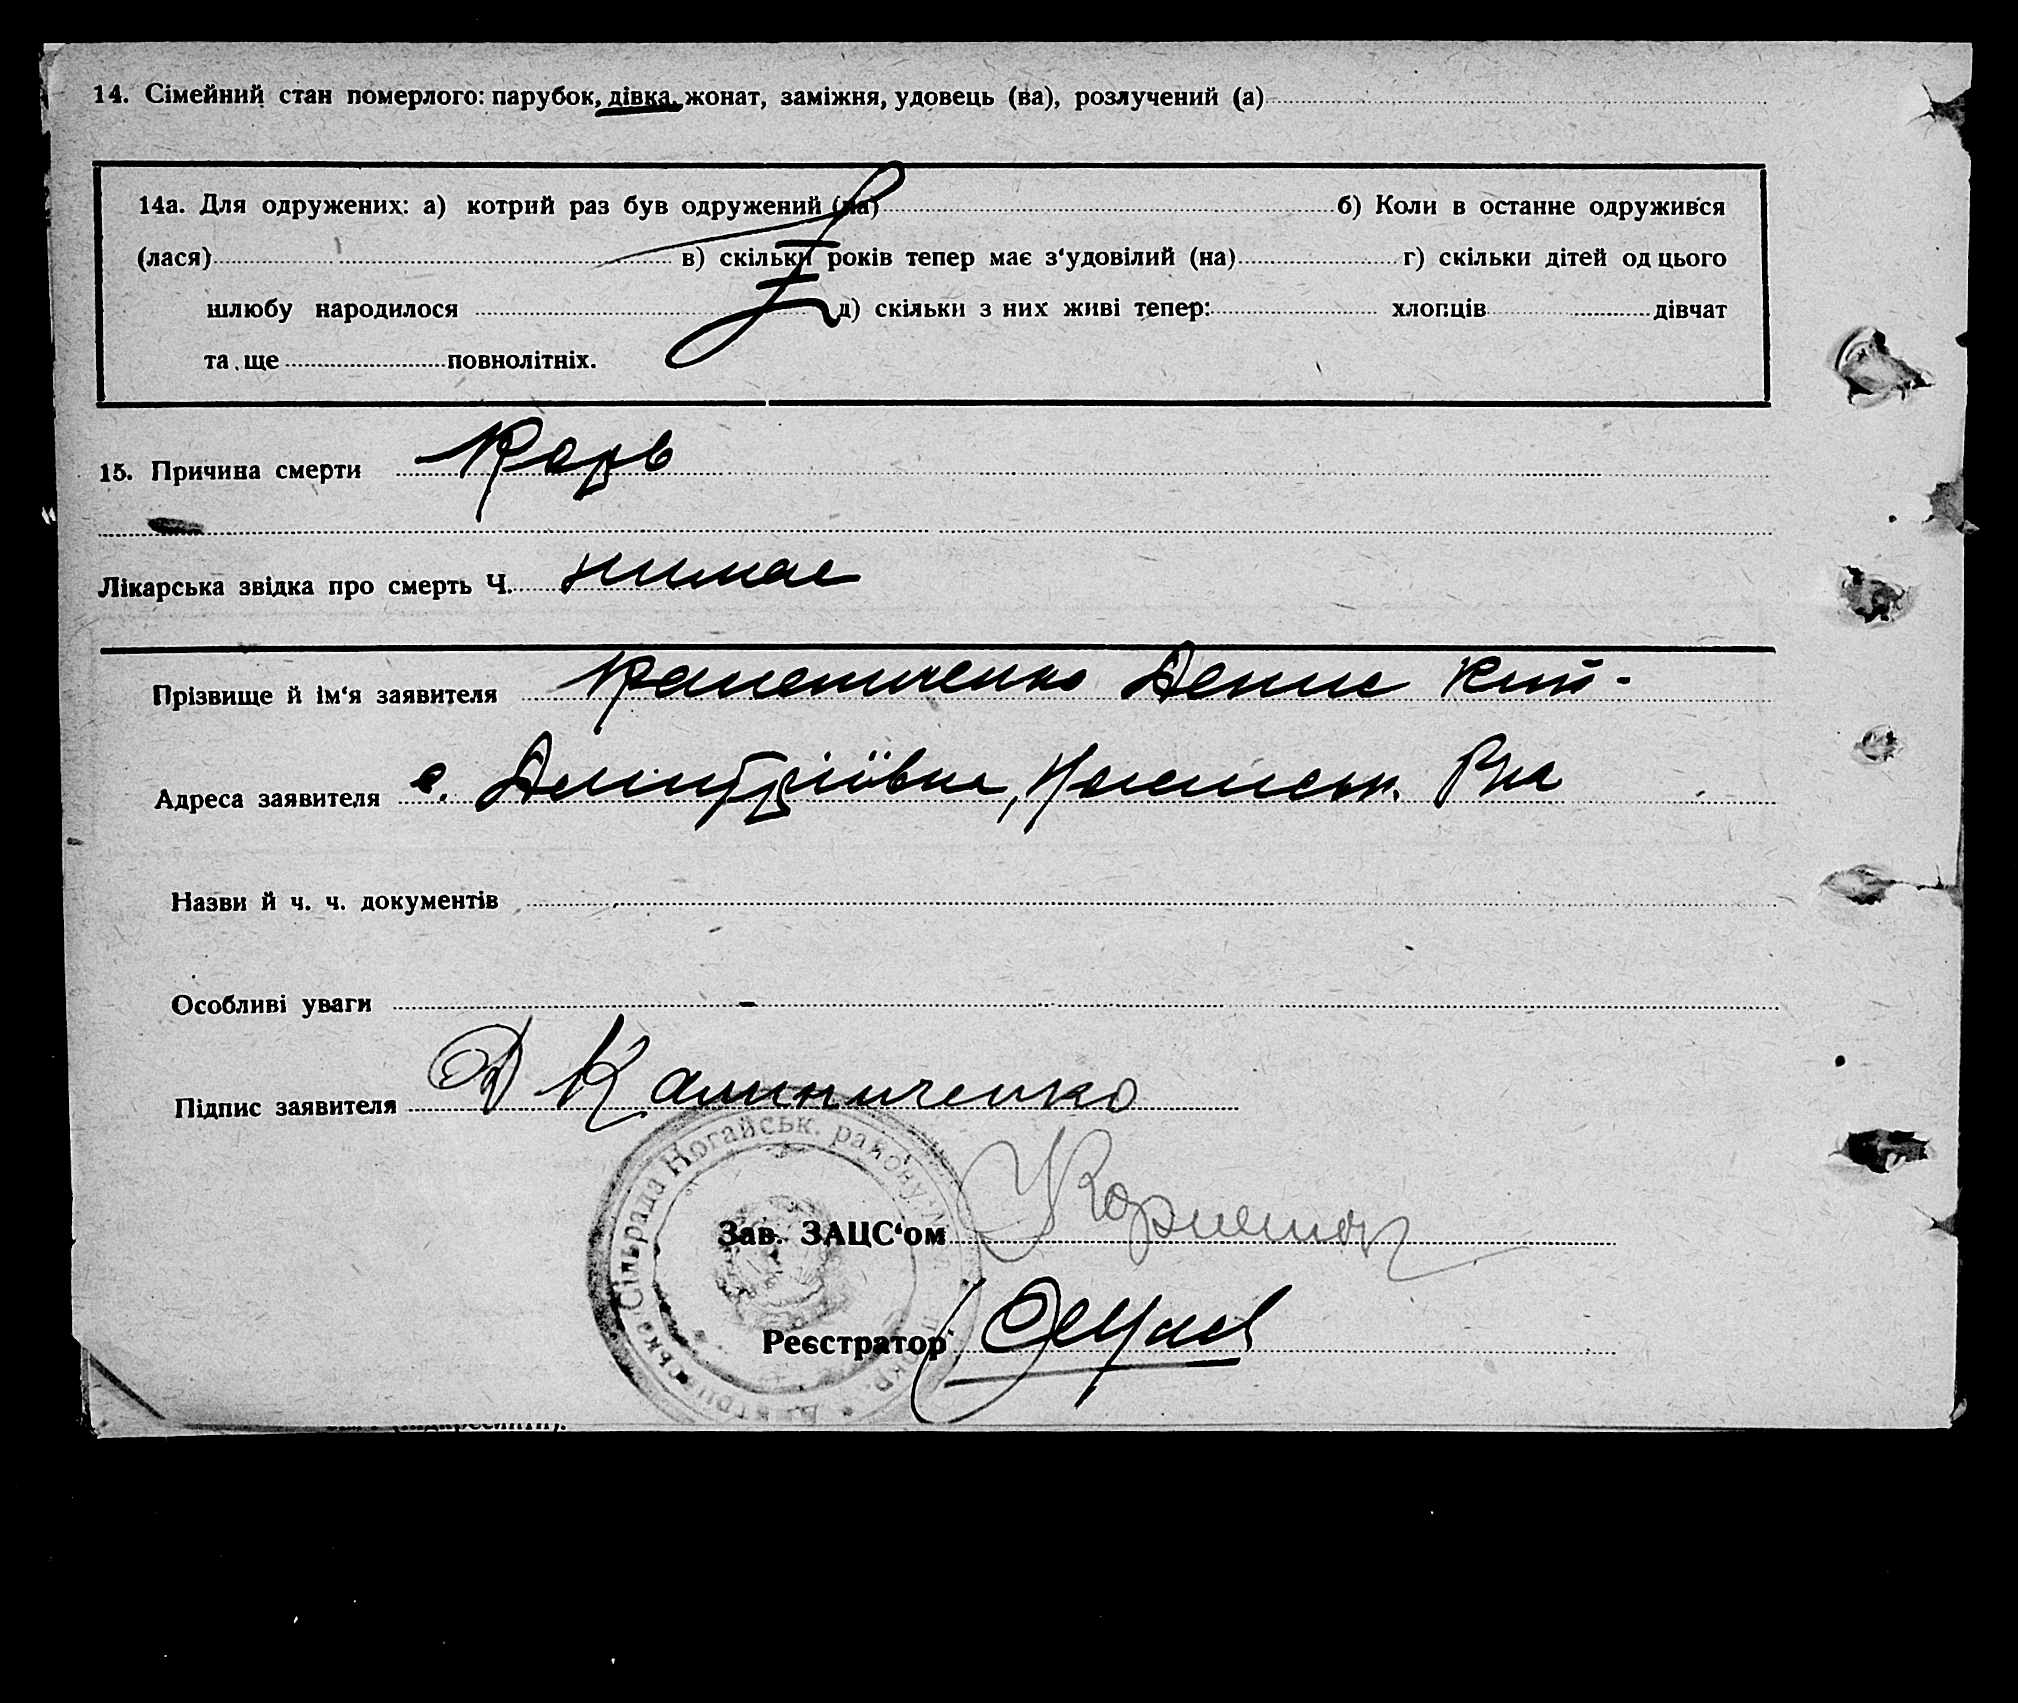 14. Сімейний стан померлого: парубок, дівка, жонат, заміжня, удовець (ва), розлучений (а)
14а. Для одружених: а) котрий раз був одружений (на) б) Коли в останне одружився
(лася) в) скільки років тепер має з‘удовілий (на) г) скільки дітей од цього
шлюбу народилося д) скільки з них живі тепер: хлопців дівчат
та ще повнолітніх.
15. Причина смерти Корь
Лікарська звідка про смерть Ч. нимае
Прізвище й ім‘я заявителя Калениченко Денис
Адреса заявителя с. Дмитріївка,
Назви й ч. ч. документів
Особливі уваги -
Підпис заявителя Д Калиниченко
Сільрада Ногайськ. району
Зав. ЗАЦС‘ом
Реєстратор